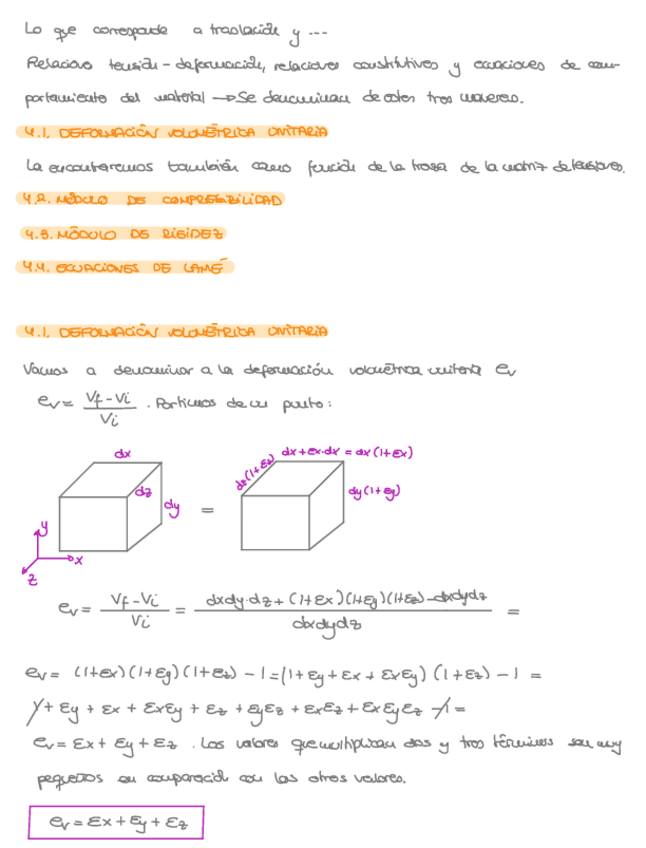 Lo que corresponde a traslación y ...
Relaciono tensión - deformación, relaciones constitutivas y ecuaciones de com-
portamiento del material → Se denominan de estas tres maneras.
4.1. DEFORMACIÓN VOLUMÉTRICA UNITARIA
La encontraremos también como función de la traza de la matriz de tensiones.
4.2. MÓDULO DE COMPRESIBILIDAD
4.3. MÓDULO DE RIGIDEZ
4.4. ECUACIONES DE LAMÉ
4.1. DEFORMACIÓN VOLUMÉTRICA UNITARIA
Vamos a denominar a la deformación volumétrica unitaria ev
ev = (Vf - Vi) / Vi . Partimos de un punto:
dx
dz
dy
y
x
z
=
dx + εx·dx = dx(1+εx)
dz(1+εz)
dy(1+εy)
ev = (Vf - Vi) / Vi = (dxdy·dz + (1+εx)(1+εy)(1+εz) - dxdydz) / dxdydz =
ev = (1+εx)(1+εy)(1+εz) - 1 = (1+εy+εx+εxεy)(1+εz) - 1 =
1 + εy + εx + εxεy + εz + εyεz + εxεz + εxεyεz - 1 =
ev = εx + εy + εz . Los valores que multiplican dos y tres términos son muy
pequeños en comparación con los otros valores.
ev = εx + εy + εz